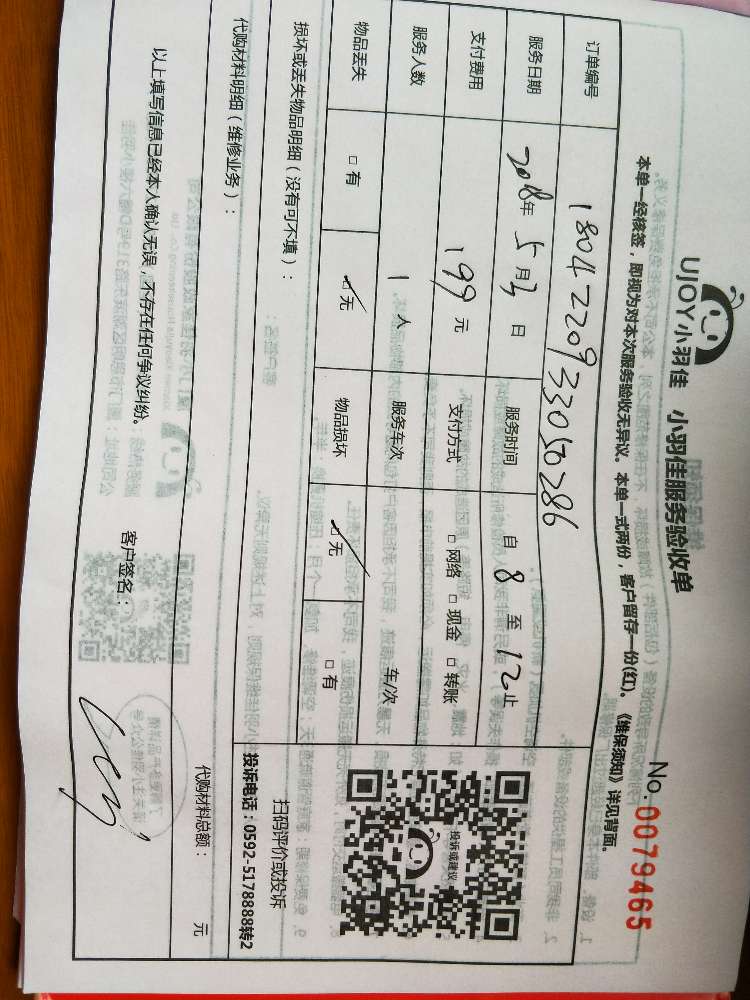 UJOY小羽佳 小羽佳服务验收单
No. 0079465
本单一经核签，即视为对本次服务验收无异议。本单一式两份，客户留存一份(红)。《维保须知》详见背面。
订单编号 1804220933050286
服务日期 2018年 5月3日 服务时间 自 8 至 12 止
支付费用 199 元 支付方式 □ 网络 □ 现金 □ 转账
服务人数 1 人 服务车次 车/次
物品丢失 □ 有 □ 无 物品损坏 □ 无 □ 有
投诉或建议
扫码评价或投诉
投诉电话：0592-5178888转2
损坏或丢失物品明细（没有可不填）：
代购材料明细（维修业务）：
代购材料总额： 元
以上填写信息已经本人确认无误，不存在任何争议纠纷。
客户签名：